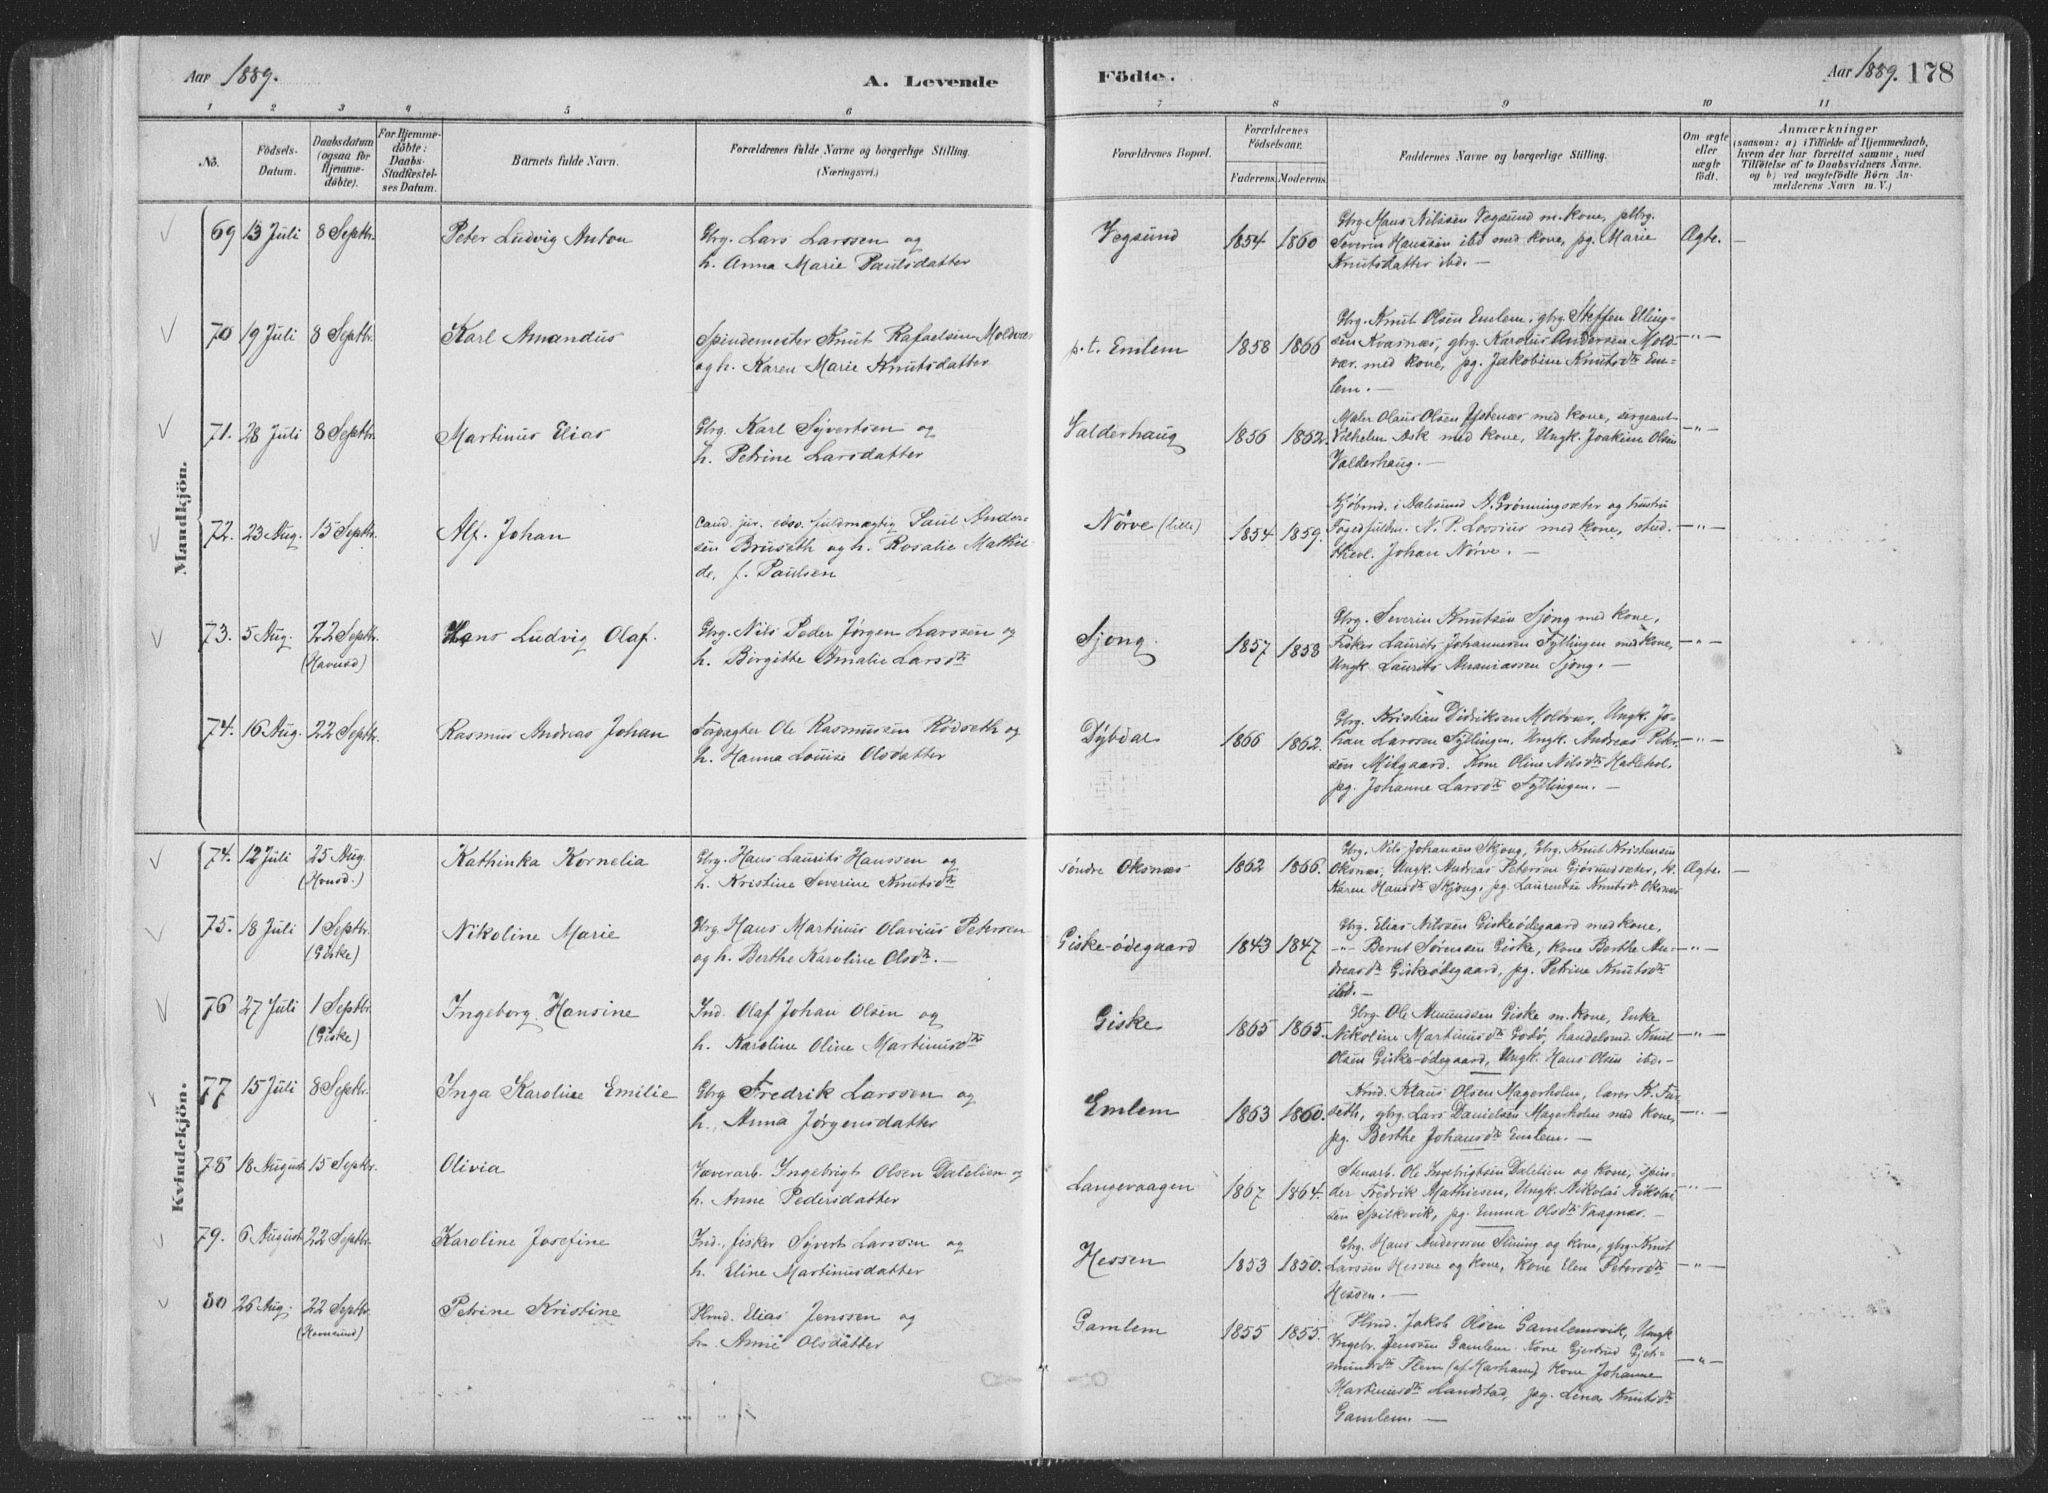 Aar 1889.
A. Levende
Födte.
Aar 1889. 178
1 2 3 4 5 6 7 8 9 10 11
No.
Födsels-
Datum.
Daabsdatum
(ogsaa for
Hjemme-
døbte).
For Hjemme-
døbte:
Daabs-
Stadfæstel-
ses Datum.
Barnets fulde Navn.
Forældrenes fulde Navne og borgerlige Stilling.
(Næringsvei.)
Forældrenes Bopæl.
Forældrenes
Födselsaar.
Faderens. Moderens.
Faddernes Navne og borgerlige Stilling.
Om ægte
eller
uægte
født.
Anmærkninger
(saasom: a) i Tilfælde af Hjemmedaab,
hvem der har forrettet samme, med
Tilföielse af to Daabsvidners Navne.
og b) ved uægtefödte Börn An-
melderens Navn m. V.)
Mandkjön.
69 13 Juli 8 Septbr. Peter Ludvig Anton
Gbrg. Lars Larssen og
h. Anna Marie Paulsdatter
Vegsund 1854 1860
Gbrg. Hans Nilssen Vegsund m. kone, gbrg.
Severin Hanssen ibd med kone, pg. Marie
Knutsdatter ibd. —
Ægte. —
70 19 Juli 8 Septbr. Karl Amandus
Spindemester Knut Rafaelsen Moldvær
og h. Karen Marie Knutsdatter
p.t. Emlem 1858 1866
Gbrg. Knut Olsen Emlem, gbrg. Steffen Elling-
sen Kvasnæs, gbrg. Karolus Andersen Mold-
vær med kone, pg. Jakobine Knutsdtr Em-
lem. —
—"—
71. 28 Juli 8 Septbr. Martinus Elias
Gbrg. Karl Syvertsen og
h. Petrine Larsdatter
Valderhaug 1856 1862.
Maler Olaus Olsen Ystenæs med kone, sergeant
Vilhelm Ask med kone, Ungk. Joakim Olsen
Valderhaug. —
—"—
72. 23 Aug. 15 Septbr. Alf Johan
cand. jur. edsv. fuldmægtig Paul Ander-
sen Bruseth og h. Rosalie Mathil-
de, f. Paulsen
Nørve (lille) 1854 1859.
Kjøbmd. i Aalesund A. Grønningsæter og hustru
Fogedfuldm. N. P. Lossius med kone, stud.
theol. Johan Nørve. —
—"—
73. 5 Aug. 22 Septbr. Hans Ludvig Olaf.
(Havnsd)
Gbrg. Nils Peder Jørgen Larssen og
h. Birgitte Amalie Larsdtr
Sjong. 1857 1858
Gbrg. Severin Knutsen Sjong med kone,
Fisker Laurits Johannesen Fyllingen med kone,
Ungk. Laurits Ananiassen Sjong. —
—"—
74. 16 Aug. 22 Septbr. Rasmus Andreas Johan
Forpagter Ole Rasmussen Rødseth og
h. Hanna Louise Olsdatter
Dybdal 1866 1862.
Gbrg. Kristian Didriksen Moltvær, Ungk. Jo-
han Larssen Fyllingen, Ungk. Andreas Peter-
sen Midgaard. Kone Oline Nilsdtr Hatlehol,
pg. Johanne Larsdtr Fyllingen. —
—"—
Kvindekjön.
74. 12 Juli 25 Aug. Kathinka Kornelia
(Havnsd.)
Gbrg. Hans Laurits Hanssen og
h. Kristine Severine Knutsdtr
søndre Oksnæs 1862 1866.
Gbrg. Nils Johansen Skjong, Gbrg. Knut Kristensen
Oksnæs, Ungk. Andreas Petersen Gjørundsæter, k.
Karen Hansdtr Skjong, pg. Laurentse Knutsdtr Oksnæs
Ægte. —
75. 18 Juli 1 Septbr. Nikoline Marie
(Giske)
Gbrg. Hans Martinus Olavius Petersen
og h. Berthe Karoline Olsdtr. —
Giske-ødegaard 1843 1847
Gbrg. Elias Nilssen Giskeødegaard med kone,
—"— Bernt Sørensen Giske, kone Berthe An-
dreasdtr Giskeødegaard, pg. Petrine Knutsdtr
ibd. —
—"—
76 27 Juli 1 Septbr. Ingeborg Hansine
(Giske)
Ind. Olaf Johan Olsen og
h. Karoline Oline Martinusdtr
Giske 1865 1865.
Gbrg. Ole Amundsen Giske m. kone, Enke
Nikoline Martinusdtr Godø, handelsmd. Knut
Olsen Giske-ødegaard, Ungk. Hans Olsen ibd. —
—"—
77 15 Juli 8 Septbr. Inga Karoline Emilie
Gbrg Fredrik Larssen og
h. Anna Jørgensdatter
Emlem 1863 1860.
Klaus Olsen Magerholm, lærer K. Fur-
seth, gbrg. Lars Danielsen Magerholm med kone,
pg. Berthe Johansdtr Emlem. —
—"—
78 18 August 15 Septbr. Olivia
Væverarb. Ingebrigt Olsen Dalelien og
h. Anne Pedersdatter
Langevaagen 1867 1864.
Stenarb. Ole Ingebrigtsen Dalelien og kone, spin-
der Fredrik Mathiesen, Ungk. Nikolai Nikolai-
sen Spilkevik, pg. Emma Olsdtr Vaagnæs. —
—"—
79. 6 August 22 Septbr. Karoline Josefine
Ind., fisker Syvert Larssen og
h. Eline Martinusdatter
Hessen 1853 1850.
Gbrg. Hans Anderssen Slining og kone, gbrg. Knut
Larssen Hessen og kone, Kone Elen Petersdtr
Hessen. —
—"—
80 26 Aug. 22 Septbr. Petrine Kristine
(Havnsund)
Plmd. Elias Jenssen og
h. Anne Olsdatter
Gamlem 1855 1855.
Plmd. Jakob Olsen Gamlemsvik, Ungk
Ingebr. Jensen Gamlem. Kone Gjertrud Gjet-
mundsdtr Flem (af Harham) Kone Johanne
Martinusdtr Landstad, pg. Lina Knutsdtr
Gamlem. —
—"—